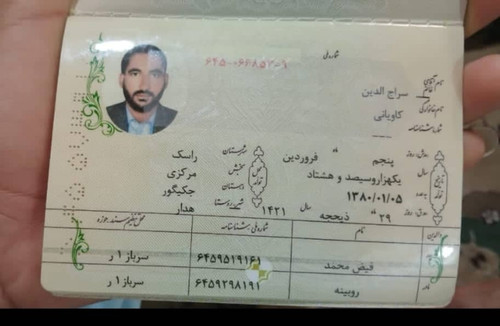 شماره ملی
۶۴۵-۰۶۶۸۵۲-۱
نام
سراج الدین
نام خانوادگی
کاویانی
شماره شناسنامه
روز
پنجم
ماه
فروردین
سال
یکهزاروسیصد و هشتاد
۱۳۸۰/۰۱/۰۵
۲۹
ماه
ذیحجه
سال
۱۴۲۱
شهرستان
راسک
بخش
مرکزی
دهستان
جکیگور
هدار
نام
شماره ملی / شناسنامه
محل تنظیم سند / حوزه
فیض محمد
۶۴۵۹۵۱۹۱۶۱
سرباز ۱ ر
روبینه
۶۴۵۹۲۹۸۱۹۱
سرباز ۱ ر